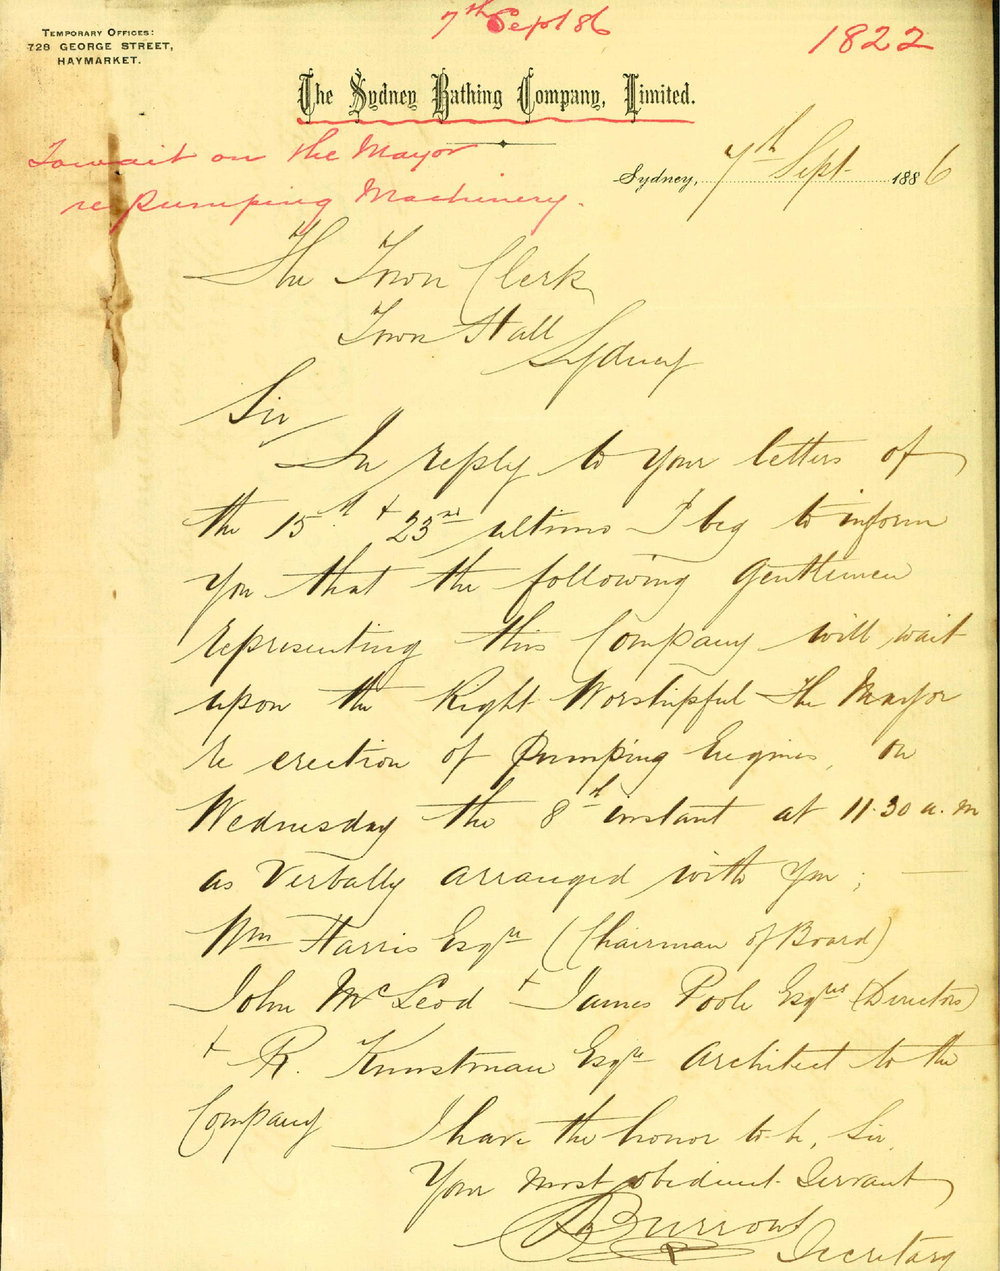 TEMPORARY OFFICES:
728 GEORGE STREET,
HAYMARKET.
7th Sept 86
1822
The Sydney Bathing Company, Limited.
To wait on the Mayor
re Pumping Machinery.
Sydney, 7th Sept 1886
The Town Clerk
Town Hall
Sydney
Sir
In reply to your letters of
the 15th + 23rd ultimo I beg to inform
you that the following Gentlemen
representing this Company will wait
upon the Right Worshipful the Mayor
re erection of Pumping Engines, on
Wednesday the 8th instant at 11.30 a.m
as Verbally arranged with you;
Wm Harris Esqre (Chairman of Board)
John McLeod + James Poole Esqres (Directors)
+ R. Kunstman Esqre Architect to the
Company
I have the honor to be, Sir
Your most obedient Servant
Burrows
Secretary